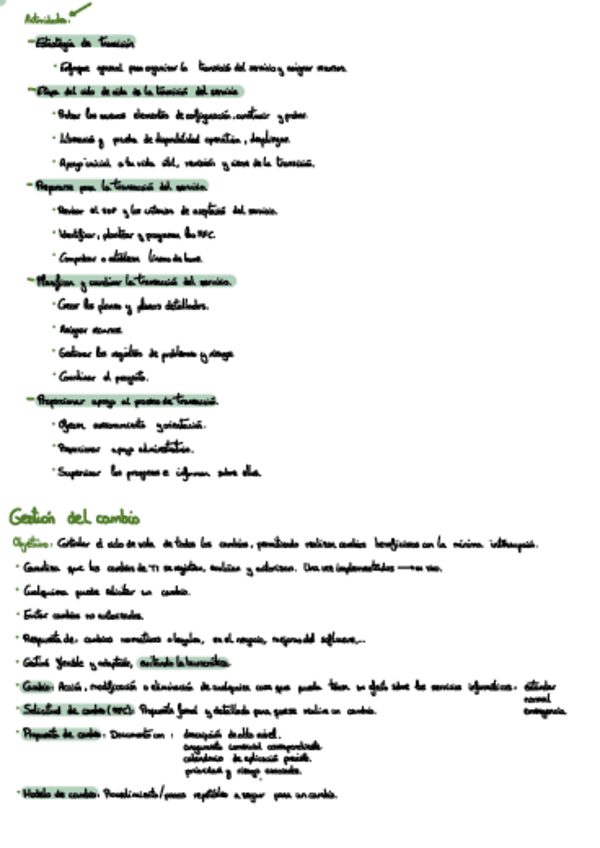 Actividades:
- Estrategia de transición
· Enfoque general para organizar la transició del servicio y asignar recursos.
- Etapa del ciclo de vida de la transició del servicio
· Probar los nuevos elementos de cofiguración, construir y probar.
· Liberació y prueba de disponibilidad operativa, desplegar.
· Apoyo inicial a la vida útil, revisión y cierre de la transició.
- Prepararse para la transició del servicio.
· Revisar el SDP y los criterios de aceptació del servicio.
· Identificar, plantear y programar los RFC.
· Comprobar o establecer líneas de base.
- Planificar y coordinar la transició del servicio.
· Crear los planes y planos detallados.
· Asignar recursos
· Gestionar los registros de problemas y riesgos
· Coordinar el proyecto.
- Proporcionar apoyo al proceso de transició.
· Ofrecer asesoramiento y orientació.
· Proporcionar apoyo administrativo.
· Supervisar los progresos e informar sobre ellos.
Gestión del cambio
Objetivo: Controlar el ciclo de vida de todos los cambios, permitiendo realizar cambios beneficiosos con la mínima interrupció.
· Garantiza que los cambios de TI se registren, evalúen y autoricen. Una vez implementados →
· Cualquiera puede solicitar un cambio.
· Evitar cambios no autorizados.
· Respuesta de: cambios normativos o legales, en el negocio, mejoras del software,...
· Gestió flexible y adaptable, evitando la burocrática.
· Cambio: Acció, modificació o eliminació de cualquier cosa que pueda tener un efecto sobre los servicios informáticos: estándar
normal
emergencia.
· Solicitud de cambio (RFC): Propuesta formal y detallada para que se realice un cambio.
· Propuesta de cambio: Documento con: descripció de alto nivel.
argumento comercial correspondiente
calendario de aplicació previsto.
prioridad y riesgo asociados.
· Modelo de cambio: Procedimiento/pasos repetibles a seguir para un cambio.